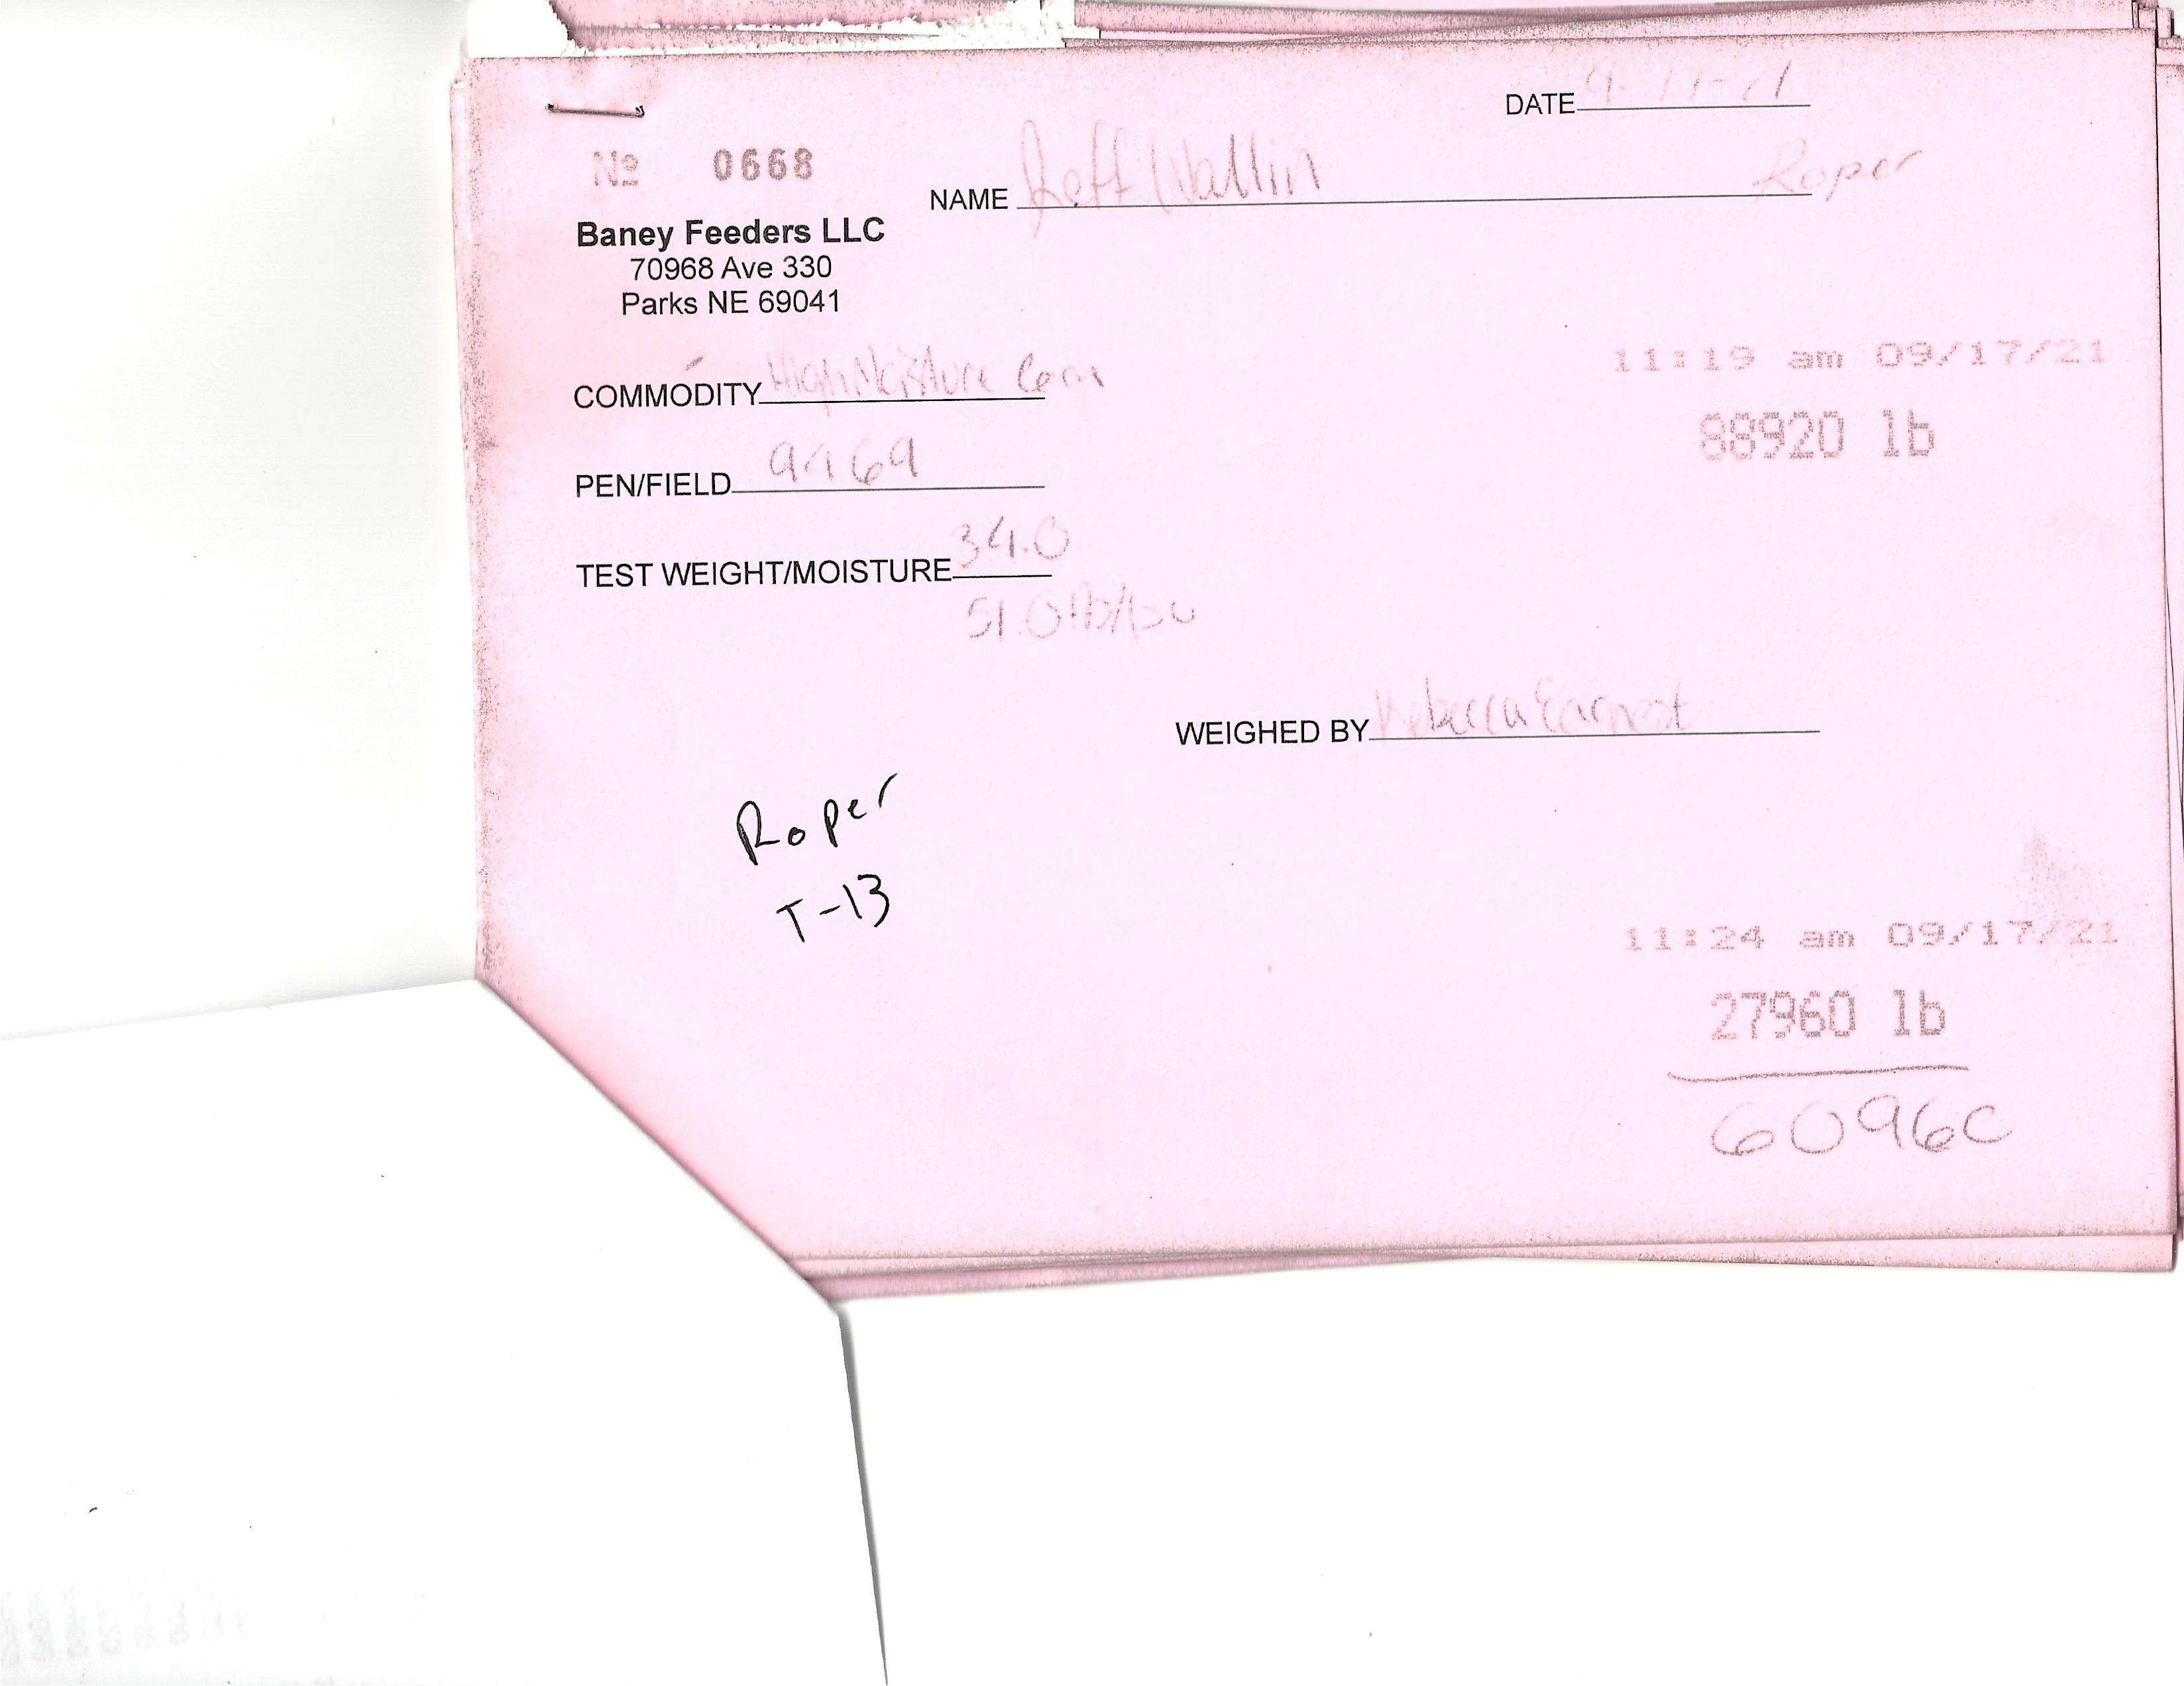 DATE
Nº 0668
NAME Jeff Wallin Roper
Baney Feeders LLC
70968 Ave 330
Parks NE 69041
11:19 am 09/17/21
COMMODITY High Moisture Corn
88920 lb
PEN/FIELD 9469
TEST WEIGHT/MOISTURE 34.0
51.0 lb/bu
WEIGHED BY Rebecca Earnest
Roper
T-13
11:24 am 09/17/21
27960 lb
60960